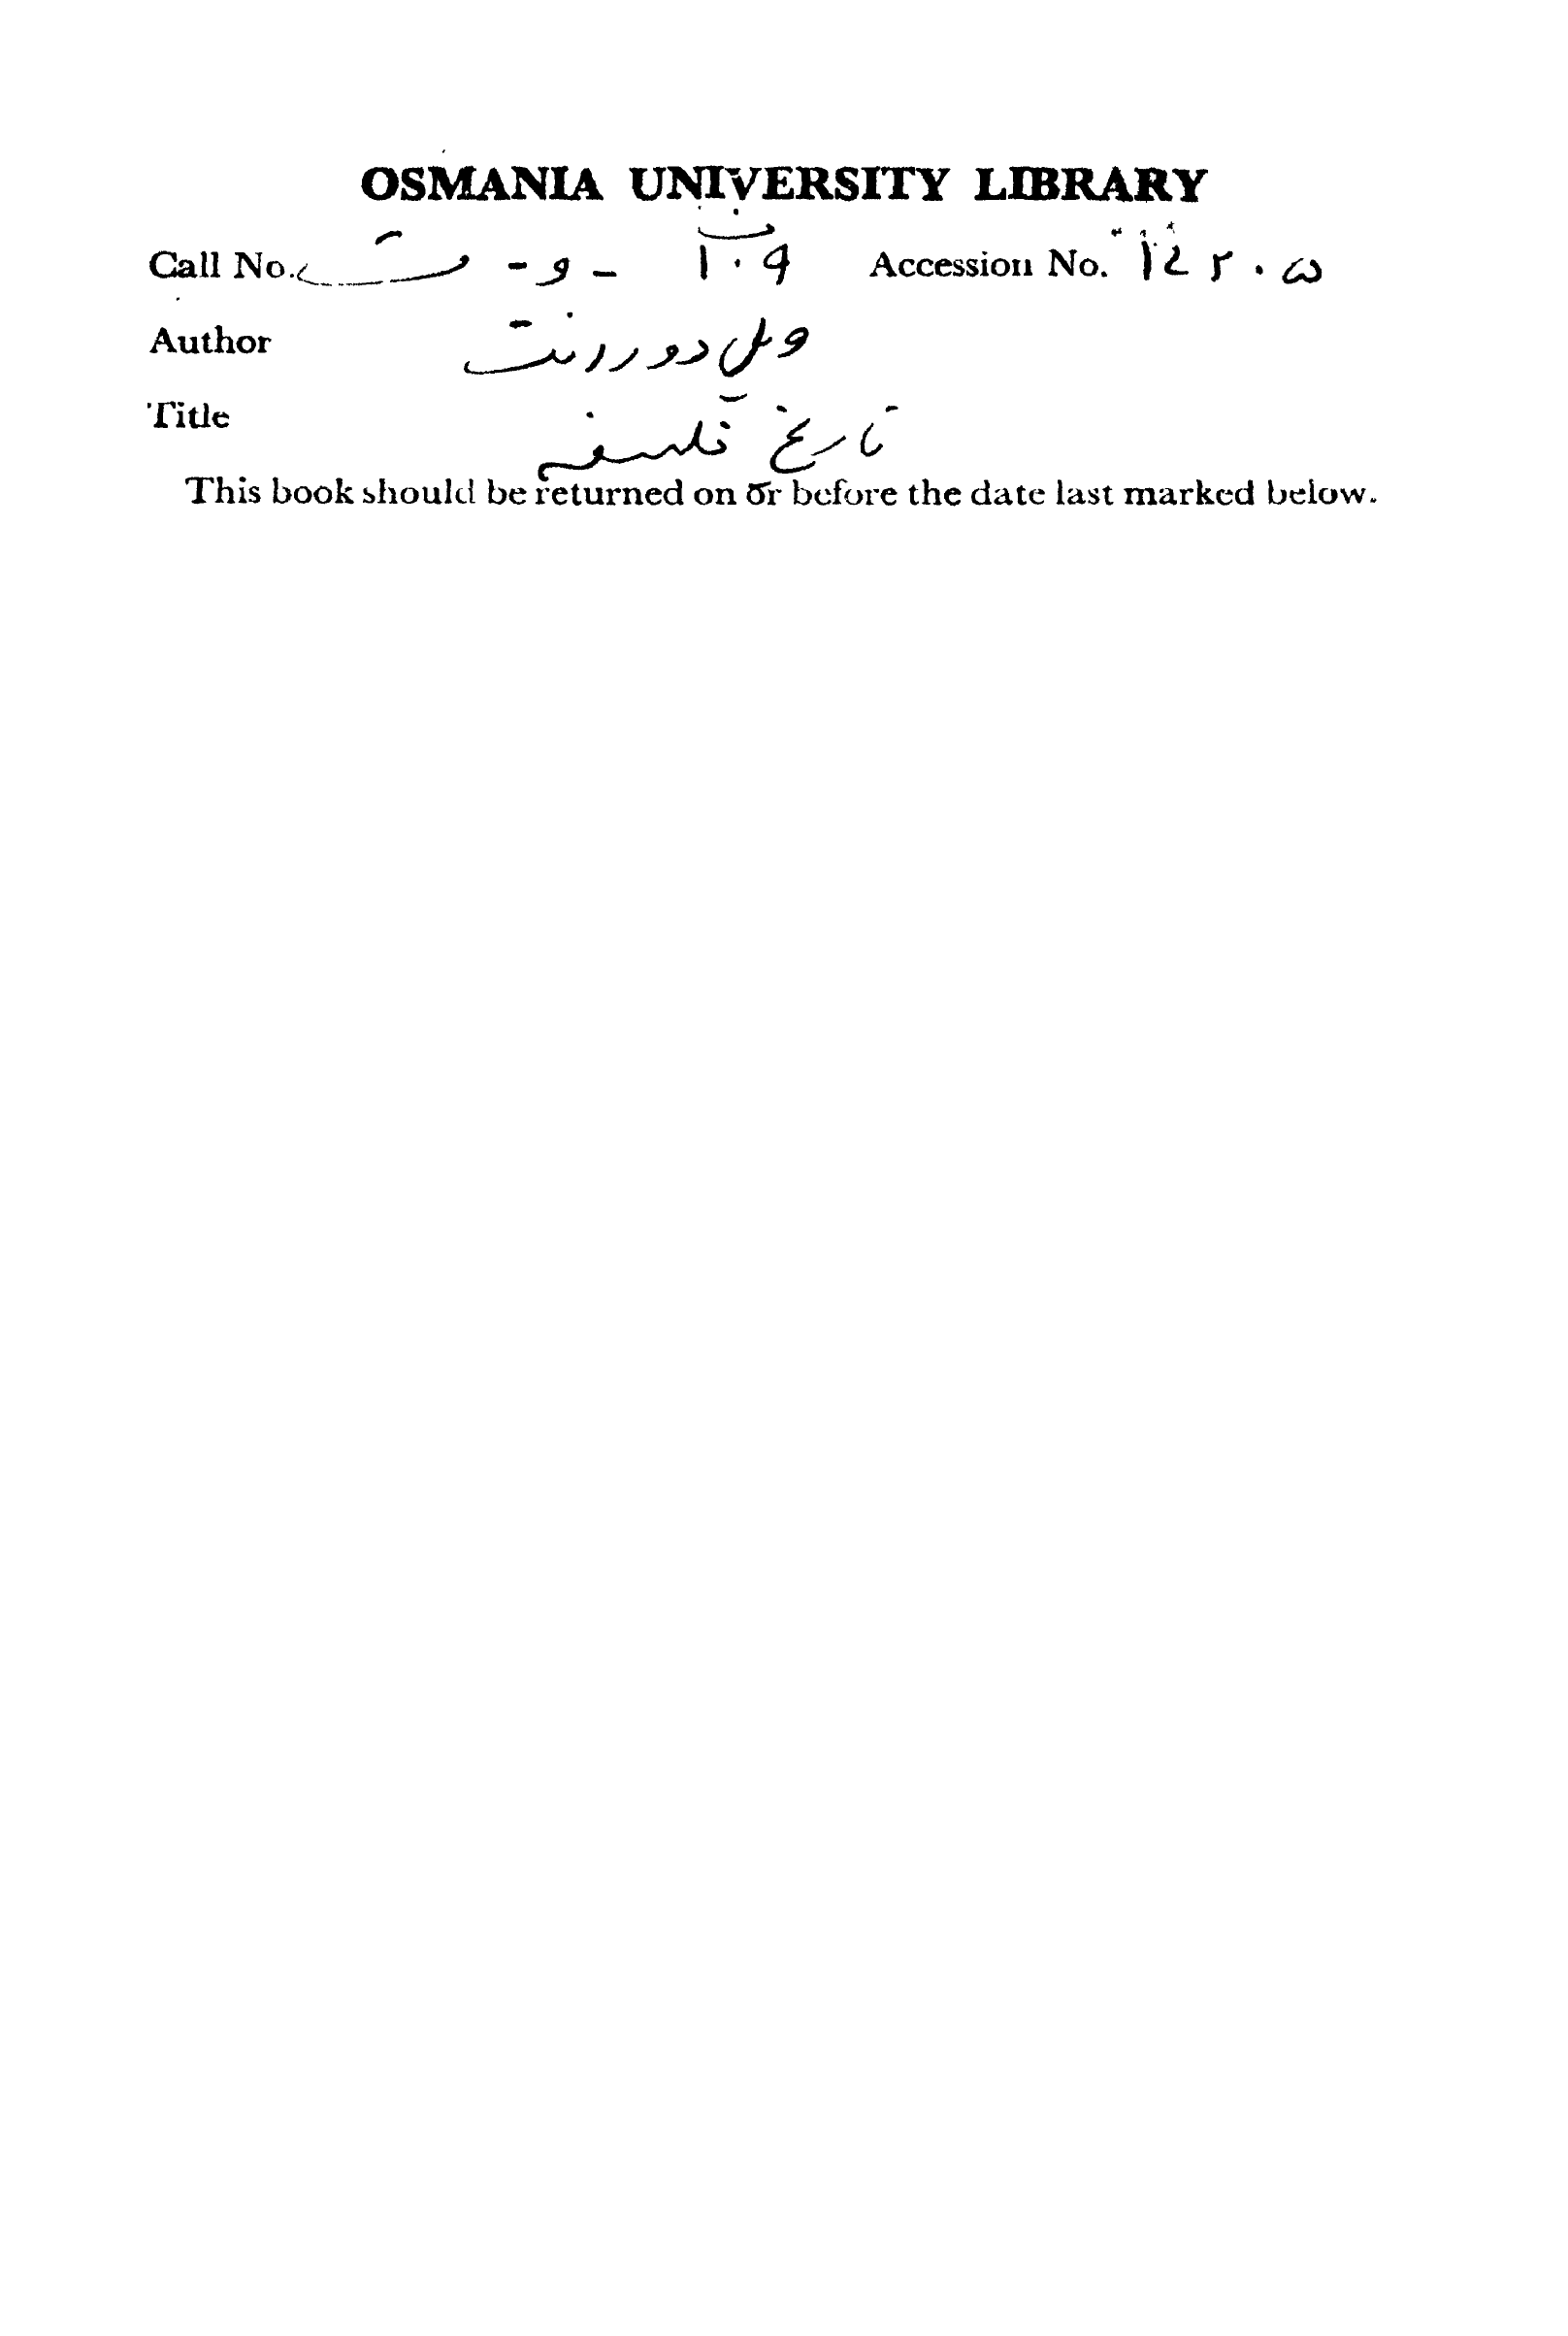 OSMANIA UNIVERSITY LIBRARY
Call No. ت - و - ۱۰۹ Accession No. ۱۴۲۰۵
Author ول دوررانت
Title تاریخ فلسفہ
This book should be returned on or before the date last marked below.